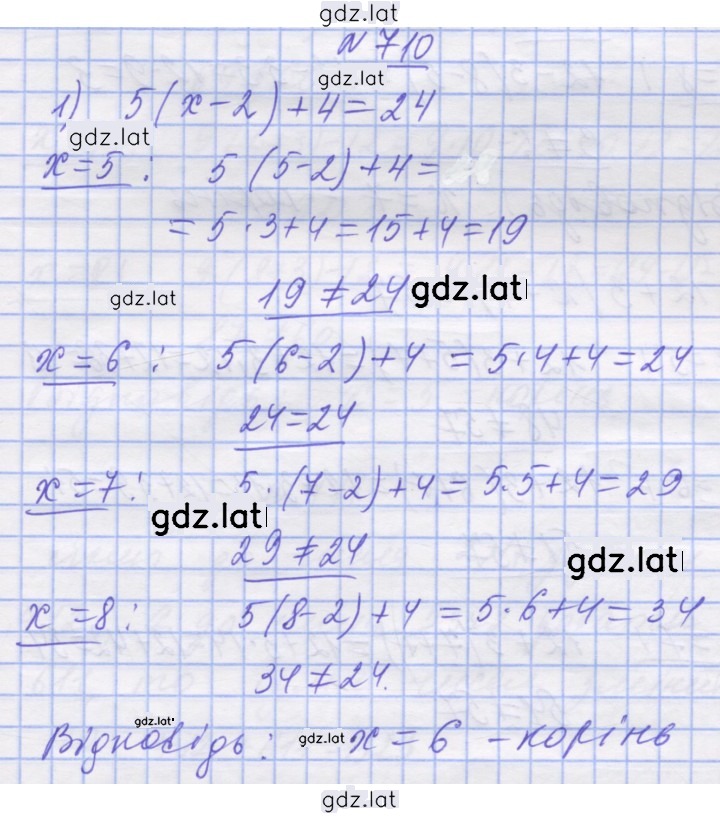 gdz.lat
№ 710
gdz.lat
1) 5(x-2)+4=24
gdz.lat
x=5: 5(5-2)+4=
=5·3+4=15+4=19
gdz.lat 19≠24 gdz.lat
x=6: 5(6-2)+4=5·4+4=24
24=24
x=7: 5·(7-2)+4=5·5+4=29
gdz.lat
29≠24 gdz.lat
x=8: 5(8-2)+4=5·6+4=34
34≠24.
gdz.lat
Відповідь: gdz.lat x=6 - корінь
gdz.lat